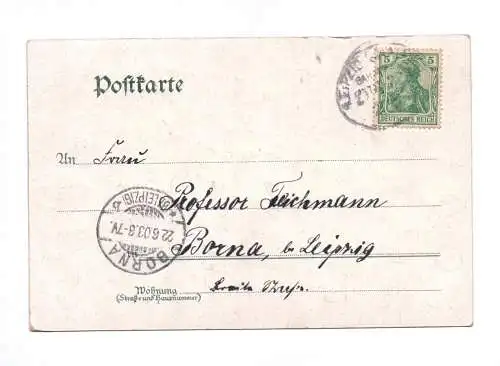 Postkarte
5 5
DEUTSCHES REICH
An Frau
Professor Teichmann
Borna, b. Leipzig
Breite Straße.
Wohnung
(Straße und Hausnummer)
BORNA
22.6.03.6-7N.
(BZ. LEIPZIG)